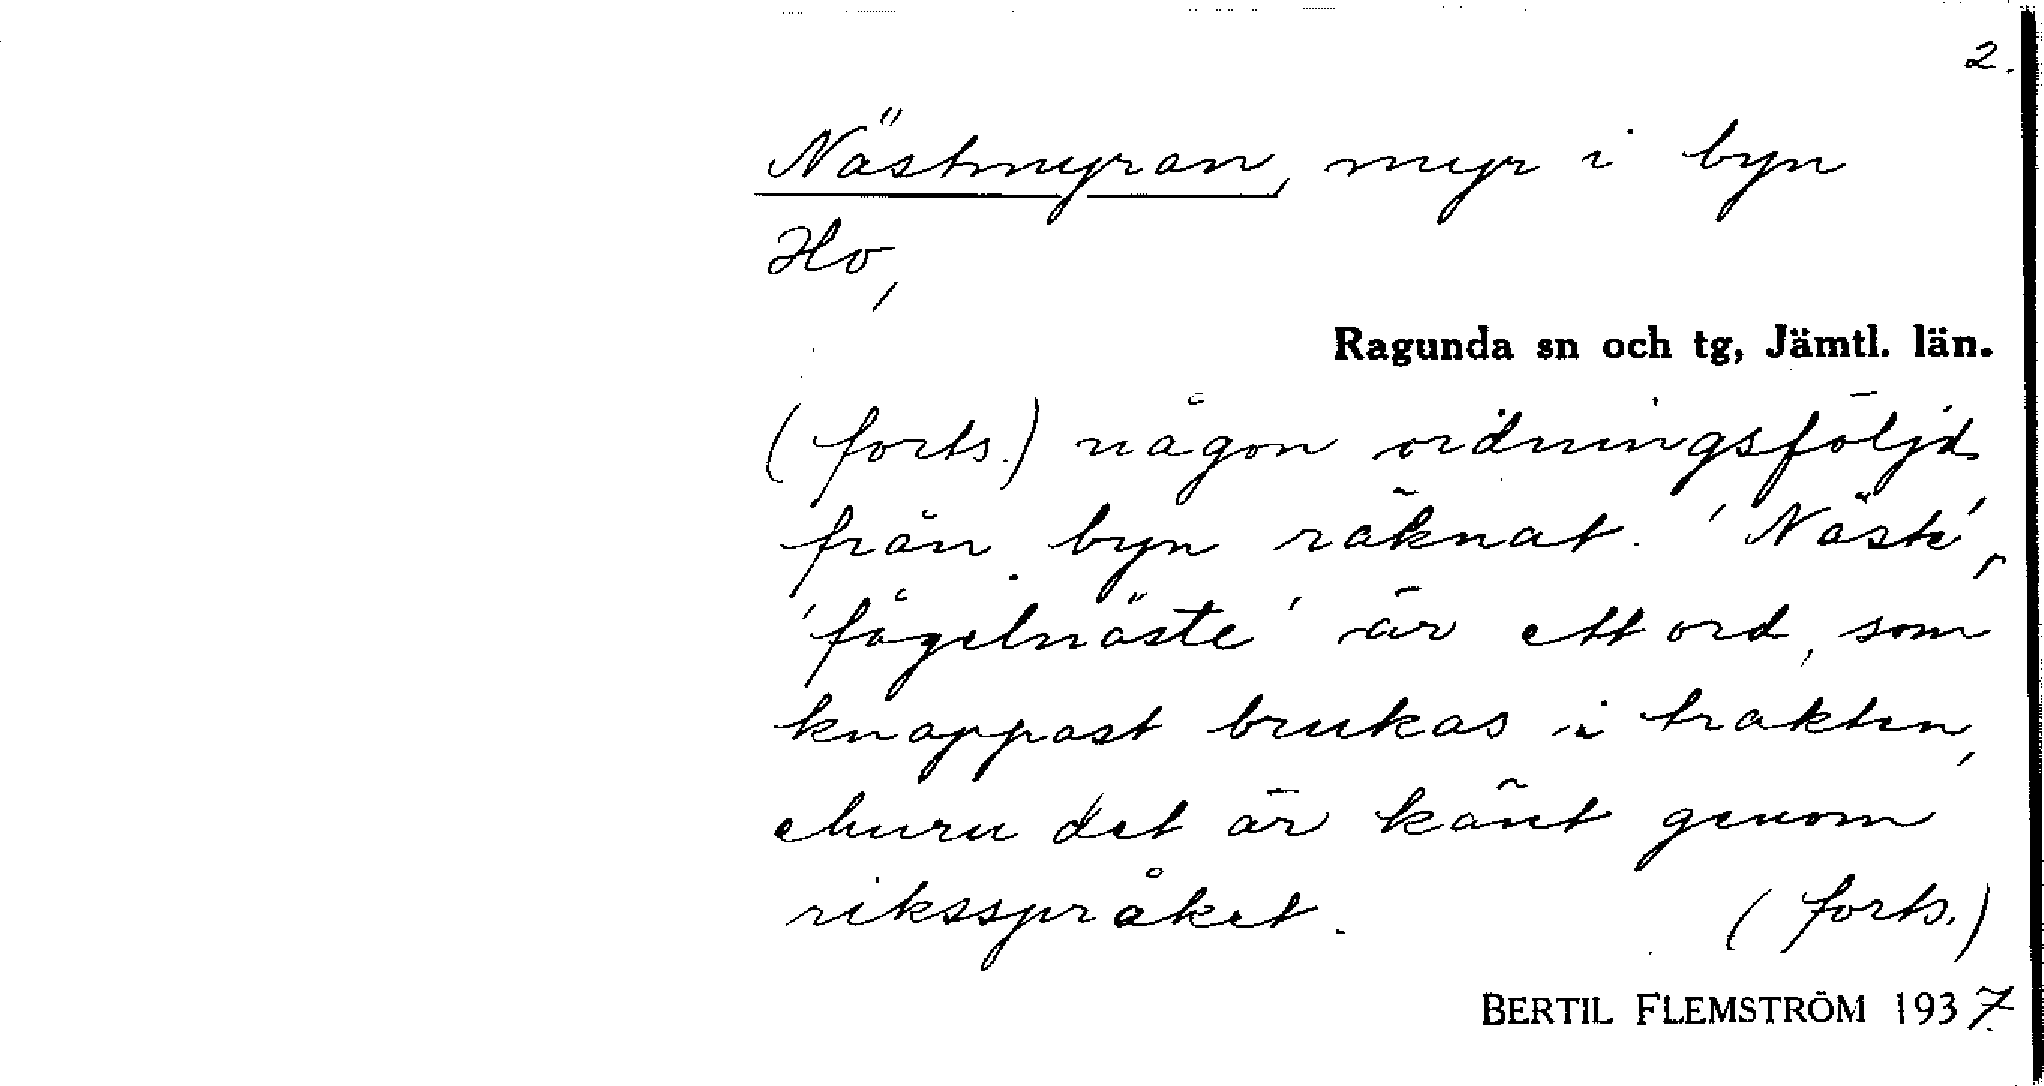 2.
Nästmyran, myr i byn
Ho,
Ragunda sn och tg, Jämtl. län.
(forts.) någon ordningsföljd
från byn räknat. 'Näste',
'fågelnäste' är ett ord, som
knappast brukas i trakten,
ehuru det är känt genom
riksspråket. (forts.)
BERTIL FLEMSTRÖM 1937